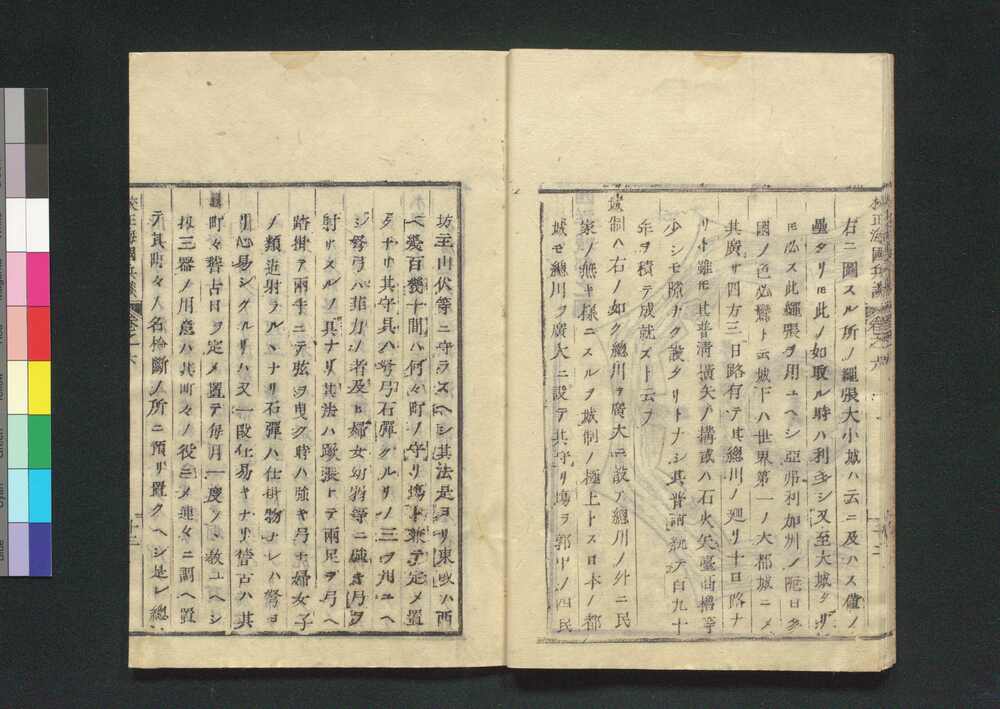 右ニ圖スル所ノ繩張大小城ハ云ニ及ハス僅ノ
壘タリ𪜈此ノ如取ル時ハ利多シ又至大城タリ
𪜈必ス此繩張ヲ用ユヘシ亞弗利加州ノ厄日多
國ノ邑必鸞ト云城下ハ世界第一ノ大都城ニメ
其廣サ四方三日路有テ其總川ノ廻リ十日路ナ
リト雖𪜈其普請橫矢ノ構或ハ石火矢臺曲櫓等
少シモ隙ナク設タリトナシ其普請統テ百九十
年ヲ積テ成就ズト云フ
城制ハ右ノ如ク總川ヲ廣大ニ設ケ總川ノ外ニ民
家ノ無キ樣ニスルヲ城制ノ極上トスロ日本ノ都
城モ總川ヲ廣大ニ設テ其守リ塲ヲ郭中ノ四民
坊主山伏等ニ守ラスヘシ其法是ヨリ東或ハ西
ヘ幾百幾十間ハ何々町ノ守リ塲ト兼テ定メ置
ヘシ其守具ハ弩弓石彈クルリノ三ヲ用ユヘ
シ弩弓ハ菲力ノ者及ヒ婦女幼弱等ニ強キ弓ヲ
射サスルノ具ナリ其法ハ蹶張トテ兩足ヲ弓ヘ
踏掛ケ兩手ニテ弦ヲ曳ク時ハ強キ弓モ婦女子
ノ類迄射ラルヽナリ石彈ハ仕掛物ナレハ弩ヨ
リ心易シクルリハ又一段仕易キナリ偖古ハ其
町々稽古日ヲ定メ置テ每月一度ツヽ敎ユヘシ
扨三器ノ用意ハ其町々ノ役ニメ連々ニ調ヘ置
テ其町々ノ名檢斷ノ所ニ預リ置クヘシ是レ總